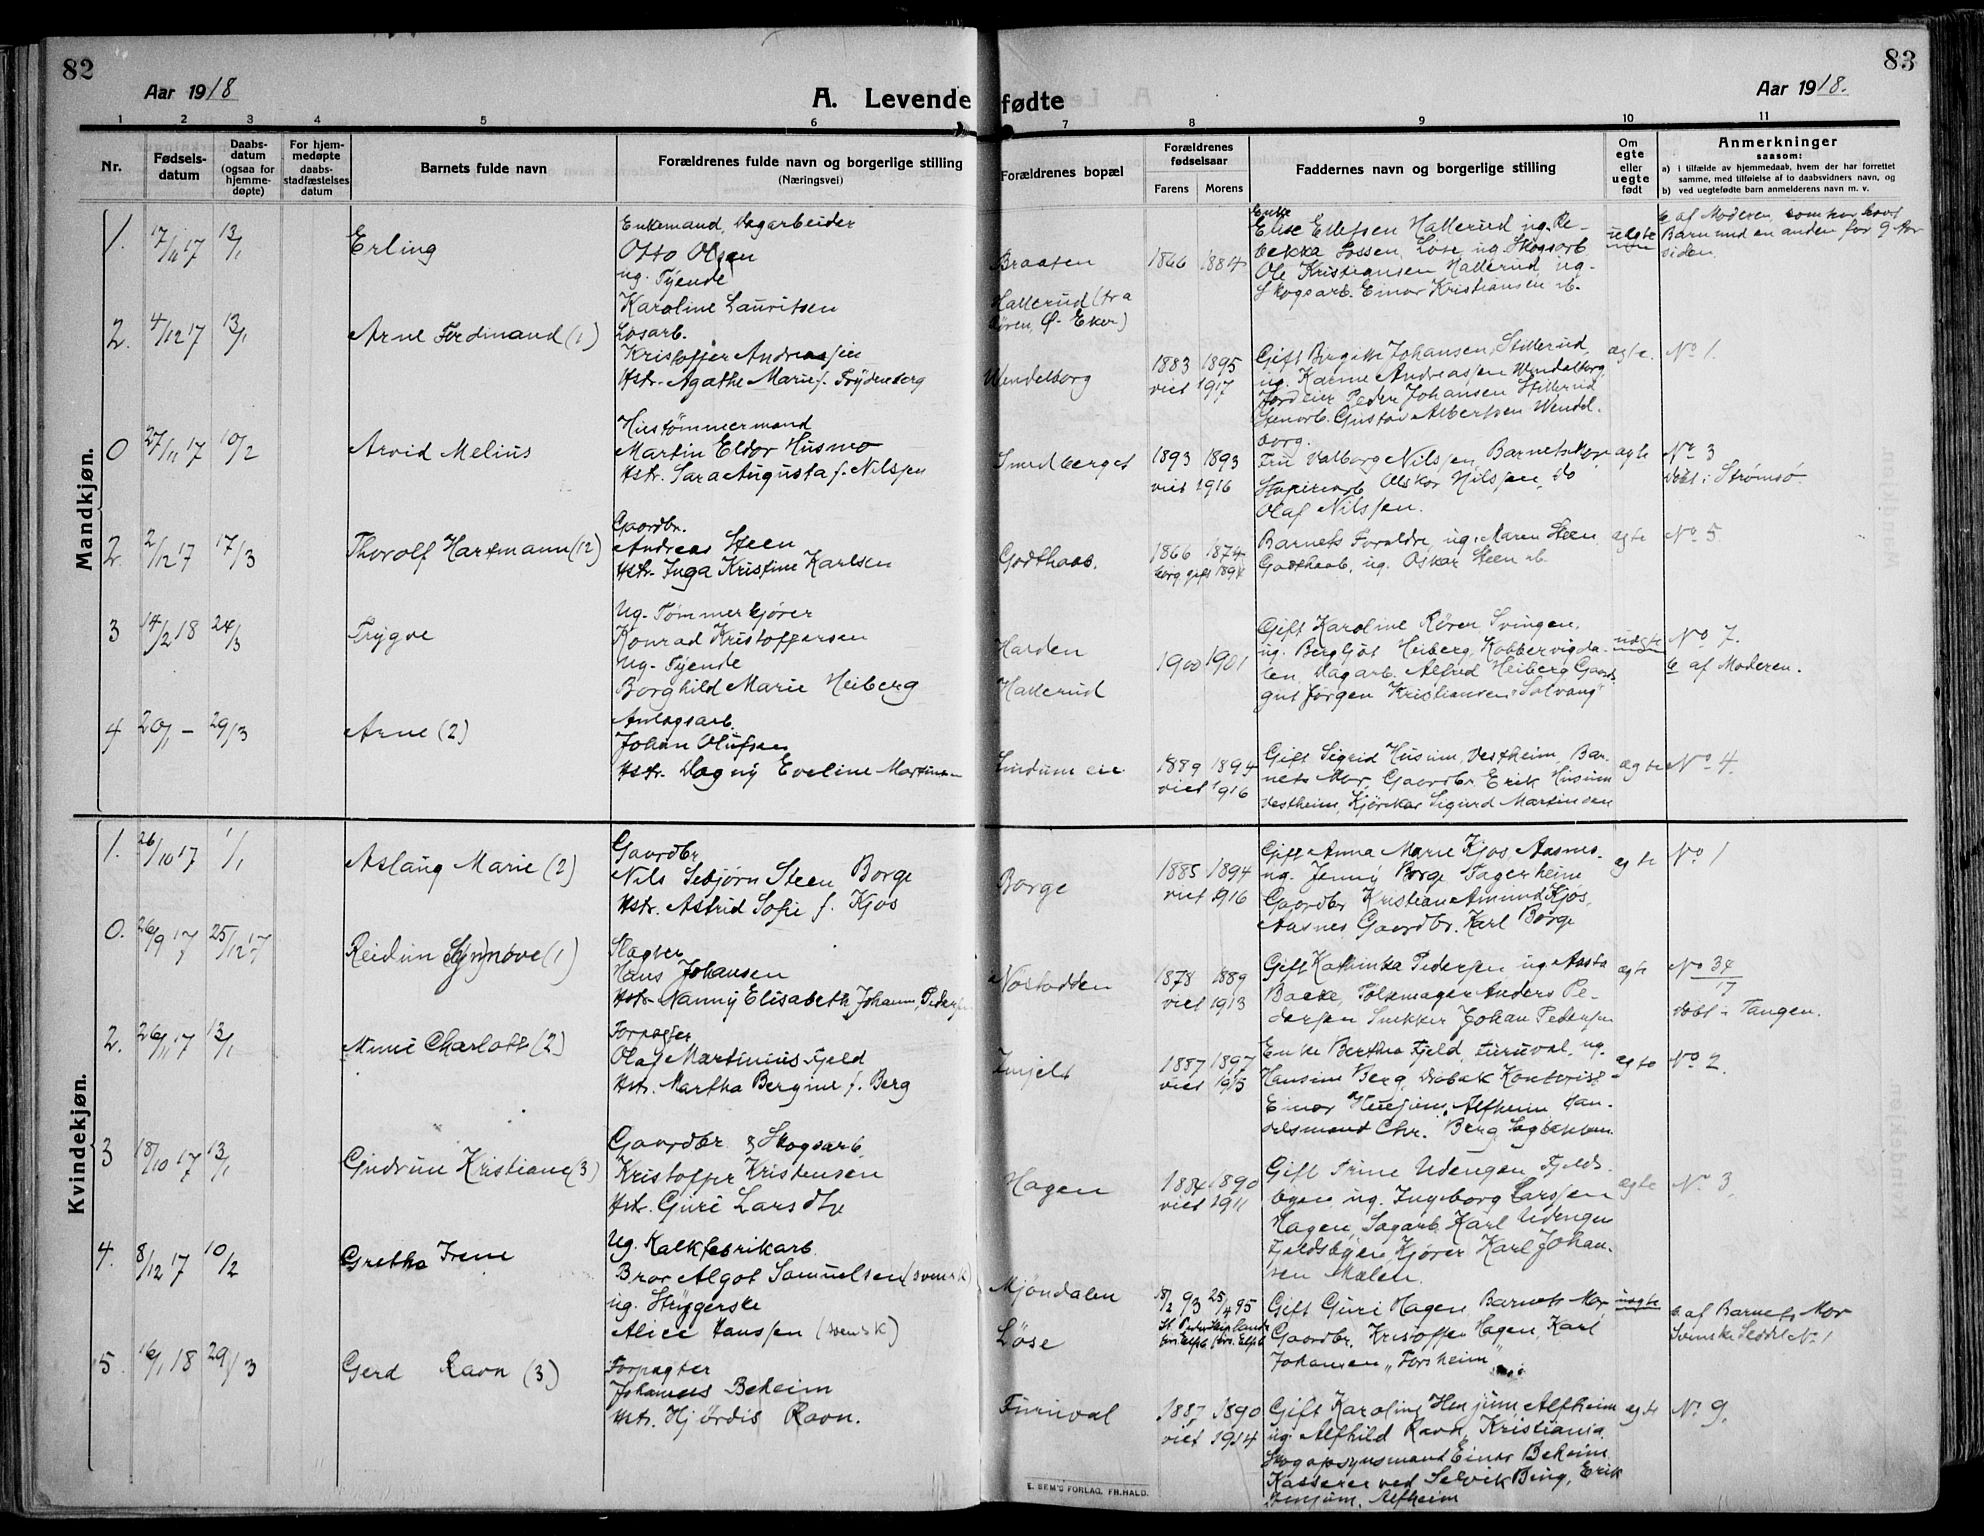 82
Aar 1918
A. Levende fødte
83
Aar 1918.
1 2 3 4 5 6 7 8 9 10 11
Nr.
Fødsels-
datum
Daabs-
datum
(ogsaa for
hjemme-
døpte)
For hjem-
medøpte
daabs-
stadfæstelses
datum
Barnets fulde navn
Forældrenes fulde navn og borgerlige stilling
(Næringsvei)
Forældrenes bopæl
Forældrenes
fødselsaar
Farens Morens
Faddernes navn og borgerlige stilling
Om
egte
eller
uegte
født
Anmerkninger
saasom:
a) i tilfælde av hjemmedaab, hvem der har forrettet
samme, med tilføielse af to daabsvidners navn, og
b) ved uegtefødte barn anmelderens navn m. v.
Mandkjøn.
1. 17/11 17 13/1 Erling
Enkemand, Dagarbeider
Otto Olsen
ug. Tyende
Karoline Lauritsen
Braaten
Hallerud (fra
Ø. Eker)
1866 1884
Enke
Elise Ellefsen Hallerud ug. Re-
bekka Løse ug Skogsarb
Ole Kristiansen Hallerud, ug.
Skogsarb. Einar Kristiansen
uegte
b af Moderen, som har havt
Barn med en anden for 9 Aar
siden.
2. 4/12 17 13/1 Arne Ferdinand (1)
Løsarb.
Kristoffer Andreassen
Hstr. Agathe Marie f. Frydenberg
Wendelborg
1883 1895
viet 1917
Gift Birgitte Johansen, Stillerud,
ug. Karine Andreassen Wendelborg,
Jordeier Peder Johansen Stillerud
Gustav Albertsen Wendel-
borg.
ægte.
No 1.
0 27/11 17 10/2 Arvid Melius
Hustømmermand
Martin Eldor Husmo
Hstr. Sara Augusta f. Nilssen
Smedberget
1893 1893
viet 1916
Fru Valborg Nilssen, Barnets Mor,
Oskar Nilssen, Do
Olaf Nilssen.
ægte
No 3
døbt i Strømsø.
2 2/12 17 17/3 Thorolf Hartmann (12)
Gaardbr.
Andreas Steen
Hstr. Inga Kristine Karlsen
Godthaab.
1866 1874
borg gift 1894
Barnets Forældre, ug. Maren Steen
Godthaab, ug. Oskar Steen
ægte
No 5
3 14/2 18 24/3 Trygve
Ug. Tømmerkjører
Konrad Kristoffersen
Ug. Tyende
Borghild Marie Heiberg
Harden
Hallerud
1900 1901
Gift Karoline Rører Svingen,
ug. Bergljot Heiberg, Kobbervigda-
len, Dagarb. Alfred Heiberg Gaard-
gut Jørgen Kristiansen "Solvang"
uægte
No 7.
b af Moderen.
4 20/1 - 29/3 Arne (2)
Anlægsarb.
Johan Olufsen
Hstr. Dagny Eveline Martinsen
Lindum eie
1889 1894
viet 1916
Gift Sigrid Husum, Vestheim, Bar-
nets Mor, Gaardbr. Erik Husum
Vestheim, Kjørekar Sigurd Martinsen
ægte
No 4.
Kvindekjøn.
1. 26/10 17 1/1 Aslaug Marie (2)
Gaardbr.
Nils Sebjørn Steen Borge
Hstr. Astrid Sofie f. Kjos
Borge
1885 1894
viet 1916
Gift Anna Marie Kjos, Aasnes.
ug. Jenny Borge Fagerheim
Gaardbr Kristian Amund Kjos,
Aasnes Gaardbr. Karl Borge
ægte
No 1
0. 26/9 17 25/12 17 Reidun Synnøve (1)
Slagter
Hans Johansen
Hstr. Nanny Elisabeth Johanne Pedersen
Nøstodden
1878 1889
viet 1913
Gift Kathinka Pedersen ug. Aasta
Bakke, Pølsemager Anders Pe-
dersen Snekker Johan Pedersen
ægte
No 34/17
døbt i Tangen.
2. 26/11 17 13/1 Charlotte (2)
Forpagter
Olaf Martinius Fjeld
Hstr. Martha Bergine f. Berg
1887 1897
viet 1915
Enke Bertha Fjeld, Furuval, ug.
Hansine Berg, Drøbak Kontorist
Einar Henjum, Alfheim, Han-
delsmand Chr. Berg
ægte
No 2.
3 18/10 17 13/1 Gudrun Kristiane (3)
Gaardbr. & Skogsarb.
Kristoffer Kristensen
Hstr. Guri Larsdtr
Hagen
1884 1890
viet 1911
Gift Trine Udengen Fjelds-
byen, ug. Ingeborg Larssen
Hagen, Sagarb. Karl Udengen
Fjeldsbyen Kjører Karl Johan-
sen Mælen.
ægte
No 3.
4. 8/12 17 10/2 Grethe Irene
Ug. Kalkfabrikarb.
Bror Algot Samuelsen (svensk)
ug. Strygerske
Alice Hanssen (svensk)
Mjøndalen
Løse
18/2 93 25/4 95
Gift Guri Hagen, Barnets Mor
Gaardbr. Kristoffer Hagen, Karl
Johansen „Forsheim"
uægte
b af Barnets Mor
Svenske Seddel No 1
5. 16/1 18 29/3 Gerd Ravn (3)
Forpagter
Johannes Beheim
Hstr. Hjørdis Ravn.
Furuval
1887 1890
viet 1914
Gift Karoline Henjum, Alfheim
ug. Alfhild Ravn, Kristiania
Skogopsynsmand Einar Beheim,
Kasserer ved Selvik Brug, Erik
Henjum, Alfheim
ægte
No 9.
E. SEM'S FORLAG, FR.HALD.